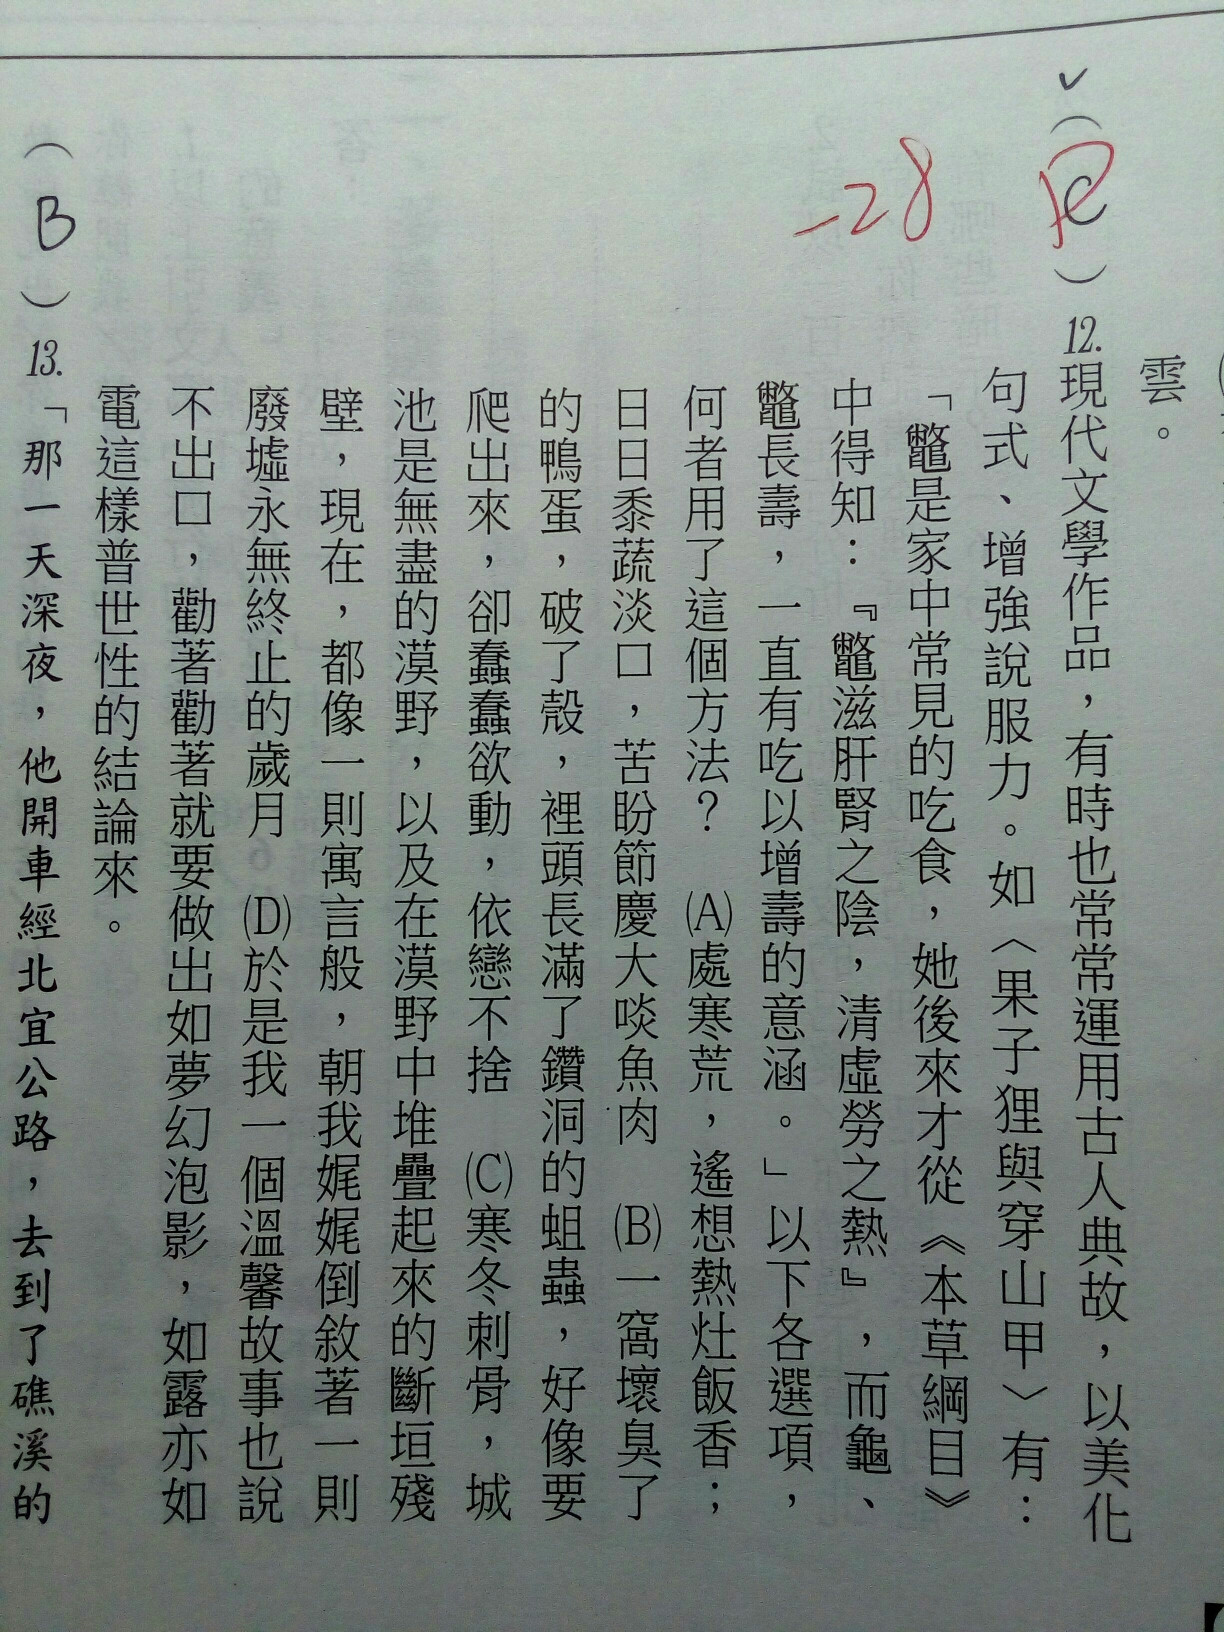 雲。
✓( C D )12.現代文學作品，有時也常常運用古人典故，以美化
句式、增強說服力。如〈果子狸與穿山甲〉有：
「鼈是家中常見的吃食，她後來才從《本草綱目》
中得知：『鼈滋肝腎之陰，清虛勞之熱』，而龜、
鼈長壽，一直有吃以增壽的意涵。」以下各選項，
何者用了這個方法？　(A)處寒荒，遙想熱灶飯香；
日日黍蔬淡口，苦盼節慶大啖魚肉　(B)一窩壞臭了
的鴨蛋，破了殼，裡頭長滿了鑽洞的蛆蟲，好像要
爬出來，卻蠢蠢欲動，依戀不捨　(C)寒冬刺骨，城
池是無盡的漠野，以及在漠野中堆疊起來的斷垣殘
壁，現在，都像一則寓言般，朝我娓娓倒敘著一則
廢墟永無終止的歲月　(D)於是我一個溫馨故事也說
不出口，勸著勸著就要做出如夢幻泡影，如露亦如
電這樣普世性的結論來。
-28
( B )13.「那一天深夜，他開車經北宜公路，去到了礁溪的